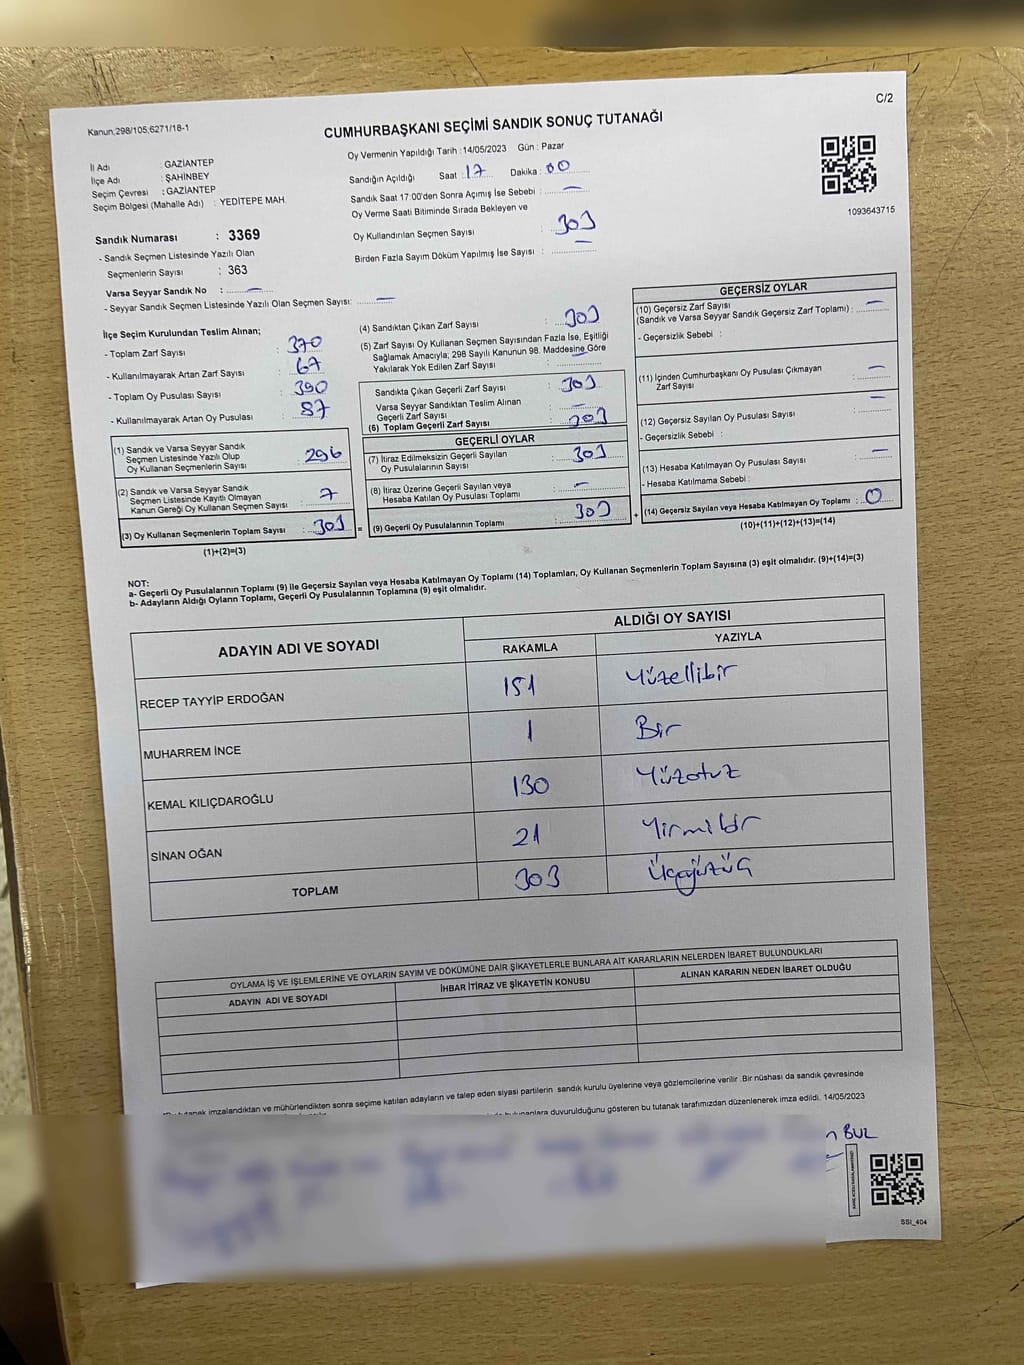 Kanun,298/105;6271/18-1
C/2
CUMHURBAŞKANI SEÇİMİ SANDIK SONUÇ TUTANAĞI
İl Adı : GAZİANTEP
İlçe Adı : ŞAHİNBEY
Seçim Çevresi : GAZİANTEP
Seçim Bölgesi (Mahalle Adı) : YEDİTEPE MAH.
Sandık Numarası : 3369
- Sandık Seçmen Listesinde Yazılı Olan
Seçmenlerin Sayısı : 363
Varsa Seyyar Sandık No : —
- Seyyar Sandık Seçmen Listesinde Yazılı Olan Seçmen Sayısı: —
Oy Vermenin Yapıldığı Tarih : 14/05/2023 Gün : Pazar
Sandığın Açıldığı Saat : 17 Dakika : 00
Sandık Saat 17:00'den Sonra Açımış İse Sebebi : —
Oy Verme Saati Bitiminde Sırada Bekleyen ve
Oy Kullandırılan Seçmen Sayısı 303
Birden Fazla Sayım Döküm Yapılmış İse Sayısı : —
1093643715
İlçe Seçim Kurulundan Teslim Alınan;
- Toplam Zarf Sayısı : 370
- Kullanılmayarak Artan Zarf Sayısı : 67
- Toplam Oy Pusulası Sayısı : 390
- Kullanılmayarak Artan Oy Pusulası : 87
(1) Sandık ve Varsa Seyyar Sandık
Seçmen Listesinde Yazılı Olup
Oy Kullanan Seçmenlerin Sayısı : 296
(2) Sandık ve Varsa Seyyar Sandık
Seçmen Listesinde Kayıtlı Olmayan
Kanun Gereği Oy Kullanan Seçmen Sayısı : 7
(3) Oy Kullanan Seçmenlerin Toplam Sayısı : 303
(1)+(2)=(3)
(4) Sandıktan Çıkan Zarf Sayısı : 303
(5) Zarf Sayısı Oy Kullanan Seçmen Sayısından Fazla İse, Eşitliği
Sağlamak Amacıyla; 298 Sayılı Kanunun 98. Maddesine Göre
Yakılarak Yok Edilen Zarf Sayısı : —
Sandıkta Çıkan Geçerli Zarf Sayısı : 303
Varsa Seyyar Sandıktan Teslim Alınan
Geçerli Zarf Sayısı : —
(6) Toplam Geçerli Zarf Sayısı : 303
GEÇERLİ OYLAR
(7) İtiraz Edilmeksizin Geçerli Sayılan
Oy Pusulalarının Sayısı : 303
(8) İtiraz Üzerine Geçerli Sayılan veya
Hesaba Katılan Oy Pusulası Toplamı : —
= (9) Geçerli Oy Pusulalarının Toplamı : 303
GEÇERSİZ OYLAR
(10) Geçersiz Zarf Sayısı
(Sandık ve Varsa Seyyar Sandık Geçersiz Zarf Toplamı) : —
- Geçersizlik Sebebi :
(11) İçinden Cumhurbaşkanı Oy Pusulası Çıkmayan
Zarf Sayısı : —
(12) Geçersiz Sayılan Oy Pusulası Sayısı : —
- Geçersizlik Sebebi :
(13) Hesaba Katılmayan Oy Pusulası Sayısı : —
- Hesaba Katılmama Sebebi :
+ (14) Geçersiz Sayılan veya Hesaba Katılmayan Oy Toplamı : 0
(10)+(11)+(12)+(13)=(14)
NOT:
a- Geçerli Oy Pusulalarının Toplamı (9) ile Geçersiz Sayılan veya Hesaba Katılmayan Oy Toplamı (14) Toplamları, Oy Kullanan Seçmenlerin Toplam Sayısına (3) eşit olmalıdır. (9)+(14)=(3)
b- Adayların Aldığı Oyların Toplamı, Geçerli Oy Pusulalarının Toplamına (9) eşit olmalıdır.
ADAYIN ADI VE SOYADI ALDIĞI OY SAYISI
RAKAMLA YAZIYLA
RECEP TAYYİP ERDOĞAN 151 Yüzellibir
MUHARREM İNCE 1 Bir
KEMAL KILIÇDAROĞLU 130 Yüzotuz
SİNAN OĞAN 21 Yirmibir
TOPLAM 303 Üçyüzüç
OYLAMA İŞ VE İŞLEMLERİNE VE OYLARIN SAYIM VE DÖKÜMÜNE DAİR ŞİKAYETLERLE BUNLARA AİT KARARLARIN NELERDEN İBARET BULUNDUKLARI
ADAYIN ADI VE SOYADI İHBAR İTİRAZ VE ŞİKAYETİN KONUSU ALINAN KARARIN NEDEN İBARET OLDUĞU
tutanak imzalandıktan ve mühürlendikten sonra seçime katılan adayların ve talep eden siyasi partilerin sandık kurulu üyelerine veya gözlemcilerine verilir .Bir nüshası da sandık çevresinde
duyurulduğunu gösteren bu tutanak tarafımızdan düzenlenerek imza edildi. 14/05/2023
BUL
SSI_404